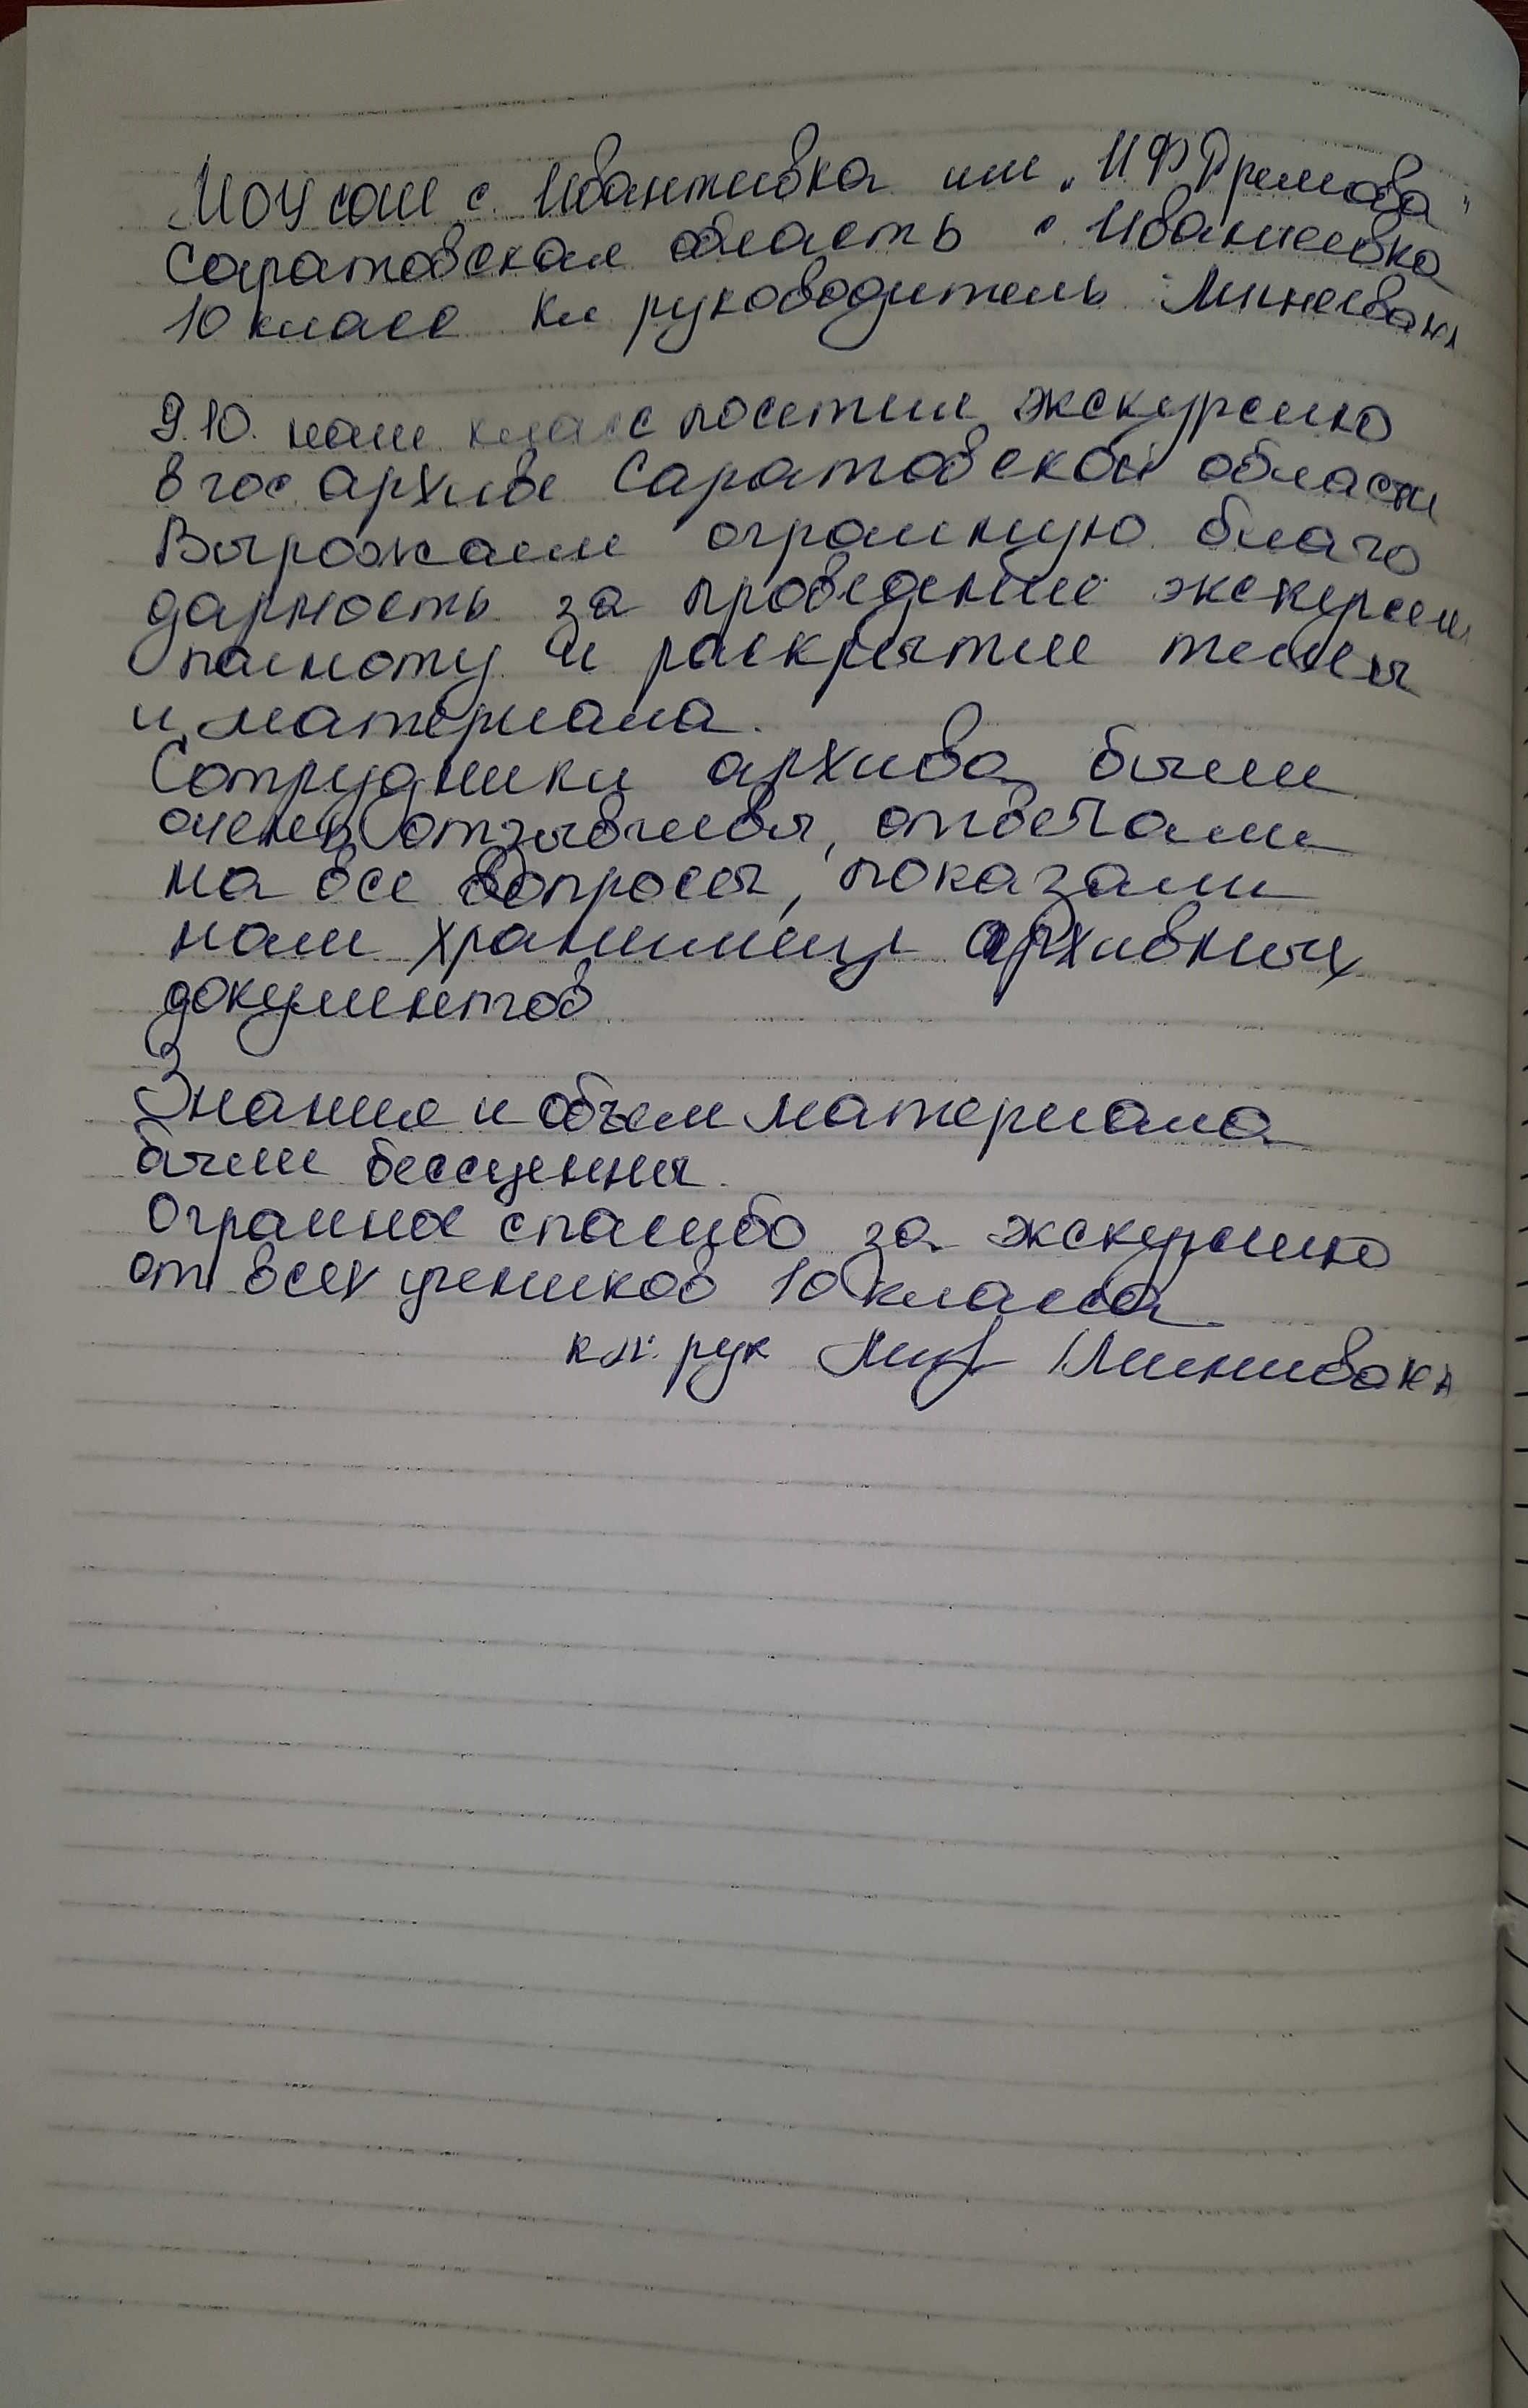 МОУ СОШ с. Ивантеевка им "И Ф Дремова"
Саратовская область с. Ивантеевка
10 класс Кл руководитель
9.10. наш класс посетил экскурсию
в гос. архиве Саратовской области
Выражаем огромную благо
дарность за проведение экскурсии
полноту и раскрытие темы
и материала.
Сотрудники архива были
очень отзывчивы, отвечали
на все вопросы, показали
нам хранилище архивных
документов
Знания и объем материала
были бесценны.
Огромное спасибо за экскурсию
от всех учеников 10 класса
кл. рук